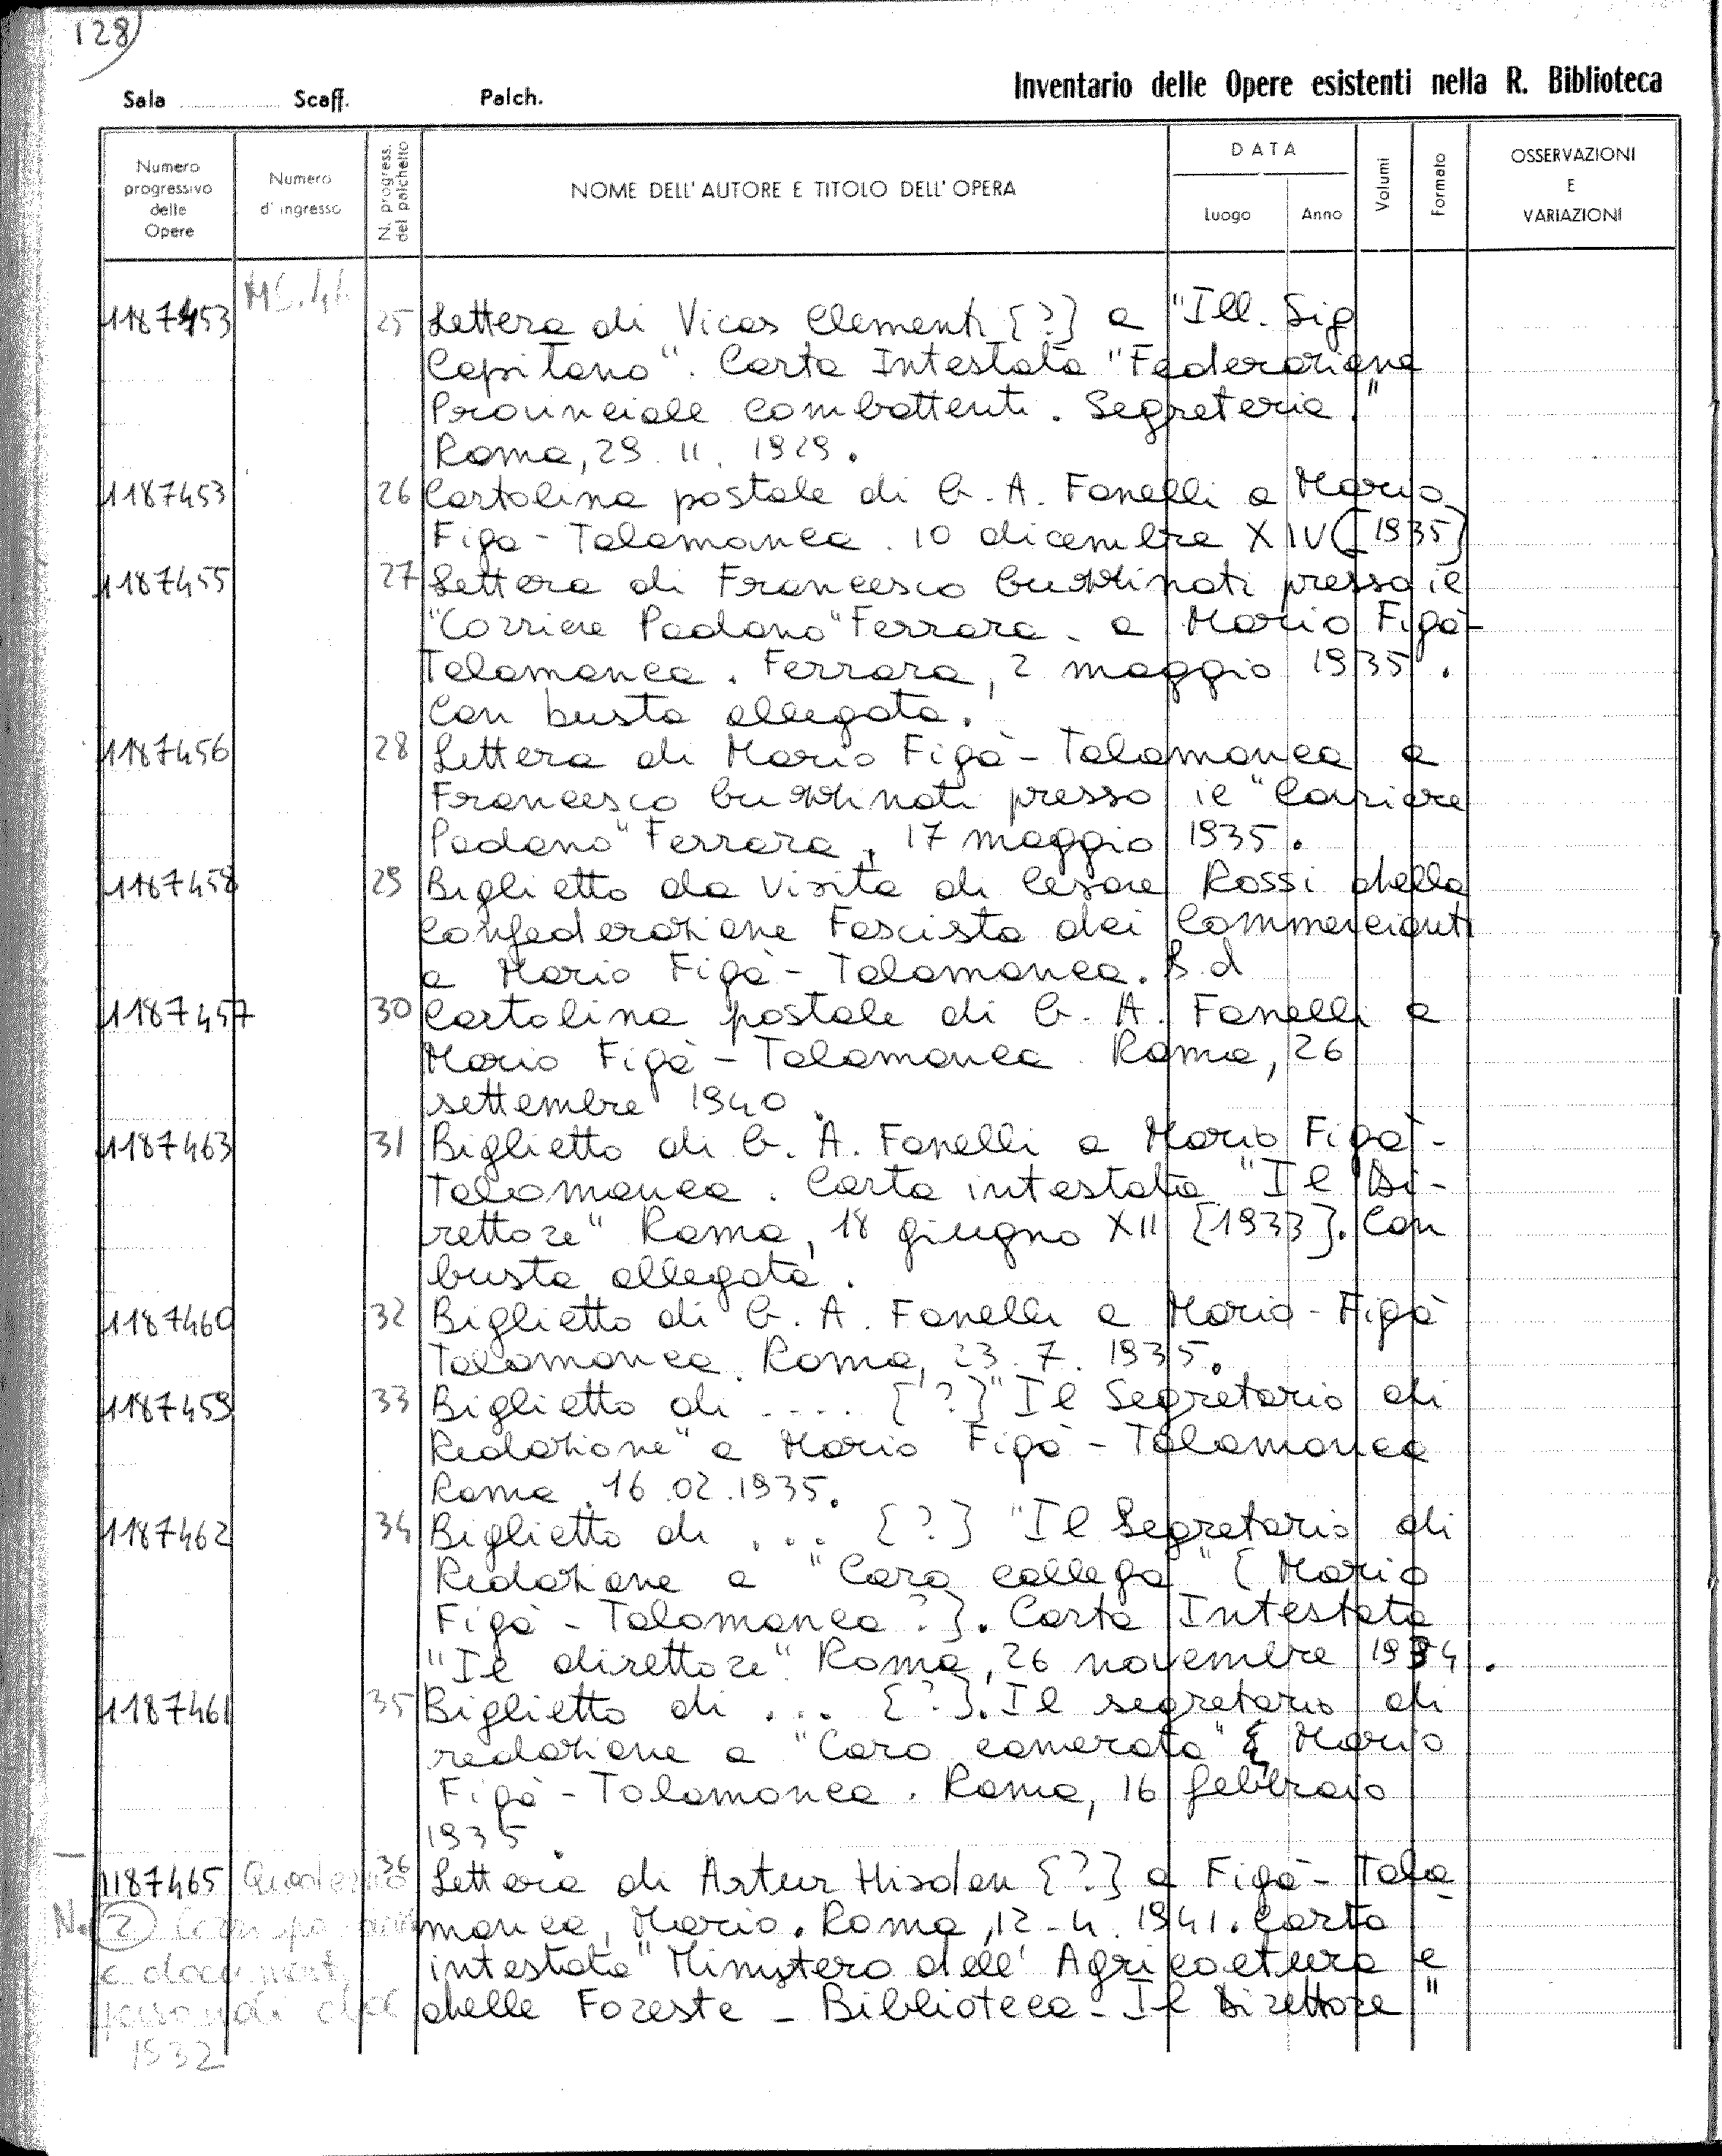 128)
Inventario delle Opere esistenti nella R. Biblioteca
Sala Scaff. Palch.
Numero progressivo delle Opere
Numero d'ingresso
N. progress. del palchetto
NOME DELL'AUTORE E TITOLO DELL'OPERA
DATA
Luogo Anno
Volumi
Formato
OSSERVAZIONI E VARIAZIONI
1187453 25 Lettera di Vicas Clementi [?] a "Ill. Sig
Capitano". Carta Intestata "Federazione
Provinciale Combattenti. Segreteria."
Roma, 29. 11. 1929.
1187453 26 Cartolina postale di G. A. Fanelli a Mario
Figa-Talamanca. 10 dicembre XIV [1935]
1187455 27 Lettera di Francesco presso il
"Corriere Padano" Ferrara. a Mario Figà-
Talamanca. Ferrara, 2 maggio 1935.
Con busta allegata.
1187456 28 Lettera di Mario Figà-Talamanca a
Francesco presso il "Corriere
Padano" Ferrara, 17 maggio 1935.
1187458 29 Biglietto da visita di Cesare Rossi della
Confederazione Fascista dei Commercianti
a Mario Figà-Talamanca. S.d
1187457 30 Cartolina postale di G. A. Fanelli a
Mario Figà-Talamanca. Roma, 26
settembre 1940.
1187463 31 Biglietto di G. A. Fanelli a Mario Figà-
Talamanca. Carta intestata "Il Di-
rettore" Roma, 18 giugno XII [1933]. Con
busta allegata.
1187460 32 Biglietto di G. A. Fanelli a Mario-Figà
Talamanca. Roma, 23. 7. 1935.
1187459 33 Biglietto di .... [?] "Il Segretario di
Redazione" a Mario Figà-Talamanca
Roma. 16.02.1935.
1187462 34 Biglietto di ... [?] "Il Segretario di
Redazione a "Caro collega" [Mario
Figà-Talamanca?]. Carta Intestata
"Il direttore". Roma, 26 novembre 1934.
1187461 35 Biglietto di ... [?]. Il segretario di
redazione a "Caro camerata" [Mario
Figà-Talamanca. Roma, 16 febbraio
1935.
1187465 36 Lettera di Artur Hisden [?] a Figà-Tala-
manca, Mario. Roma, 12-4. 1941. Carta
intestata "Ministero dell'Agricoltura e
delle Foreste - Biblioteca - Il Direttore"
N. 2
1932